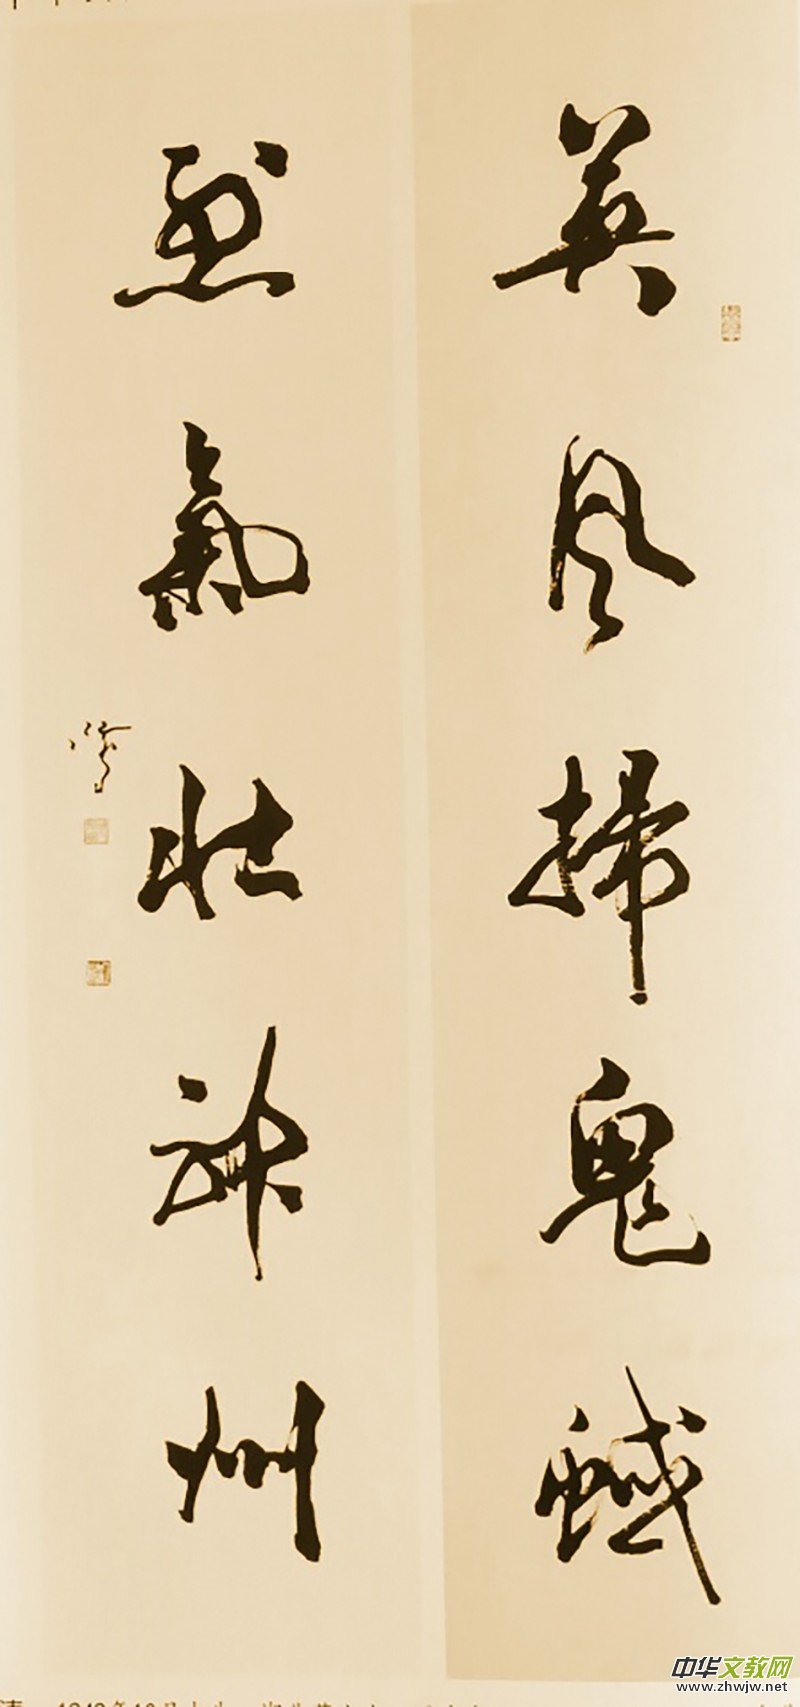 英风掃鬼蜮
烈氣壮神州
中华文教网
www.zhwjw.net